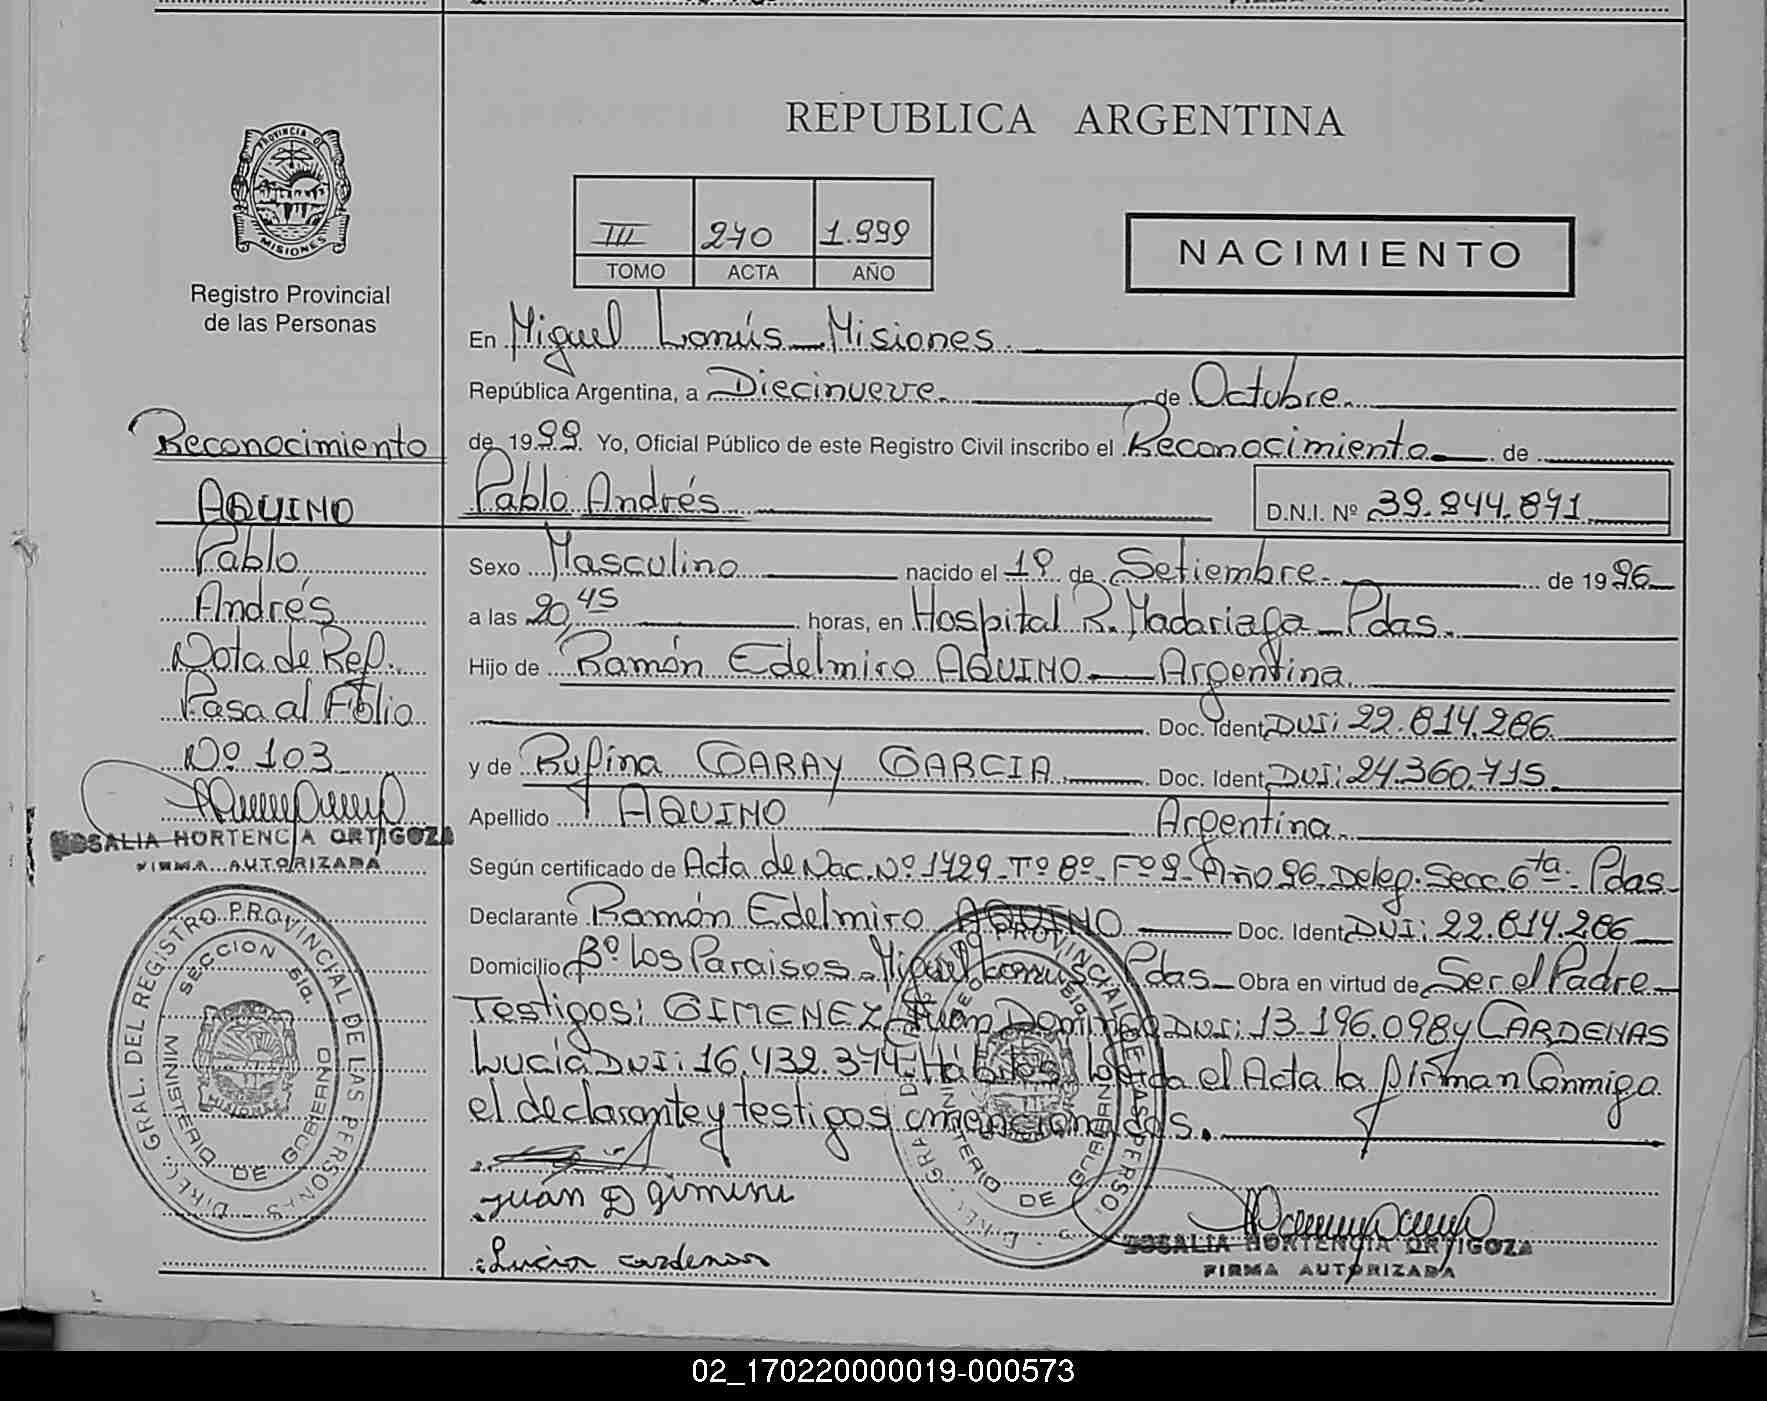 REPUBLICA ARGENTINA
PROVINCIA DE
MISIONES
Registro Provincial
de las Personas
III 270 1.999
TOMO ACTA AÑO
NACIMIENTO
En Miguel Lanús Misiones.
República Argentina, a Diecinueve de Octubre
de 1999. Yo, Oficial Público de este Registro Civil inscribo el Reconocimiento de
Pablo Andrés
D.N.I. Nº 39.944.871
Sexo Masculino nacido el 1º de Setiembre de 1996
a las 20,45 horas, en Hospital R. Madariaga Pdas.
Hijo de Ramón Edelmiro AQUINO Argentina
Doc. Ident DNI: 22.814.286
y de Rufina GARAY GARCIA Doc. Ident DNI: 24.360.715
Apellido AQUINO Argentina
Según certificado de Acta de Nac. Nº 1729 Tº 8º Fº 9 Año 96 Deleg. Secc. 6ta. Pdas
Declarante Ramón Edelmiro AQUINO Doc. Ident DNI: 22.814.286
Domicilio Bº Los Paraisos Miguel Lanus Pdas Obra en virtud de Ser el Padre
Testigos: GIMENEZ Juan Domingo DNI: 13.196.098 y CARDENAS
Lucía DNI: 16.732.374 Hábiles. Leída el Acta la firman Conmigo
el declarante y testigos mencionados.
Juán D gimenez
Lucia cardenas
ROSALIA HORTENCIA ORTIGOZA
FIRMA AUTORIZADA
Reconocimiento
AQUINO
Pablo
Andrés
Nota de Ref.
Pasa al Folio
Nº 103
ROSALIA HORTENCIA ORTIGOZA
FIRMA AUTORIZADA
DIREC. GRAL. DEL REGISTRO PROVINCIAL DE LAS PERSONAS
SECCION 6ta.
MINISTERIO DE GOBIERNO
02_170220000019-000573